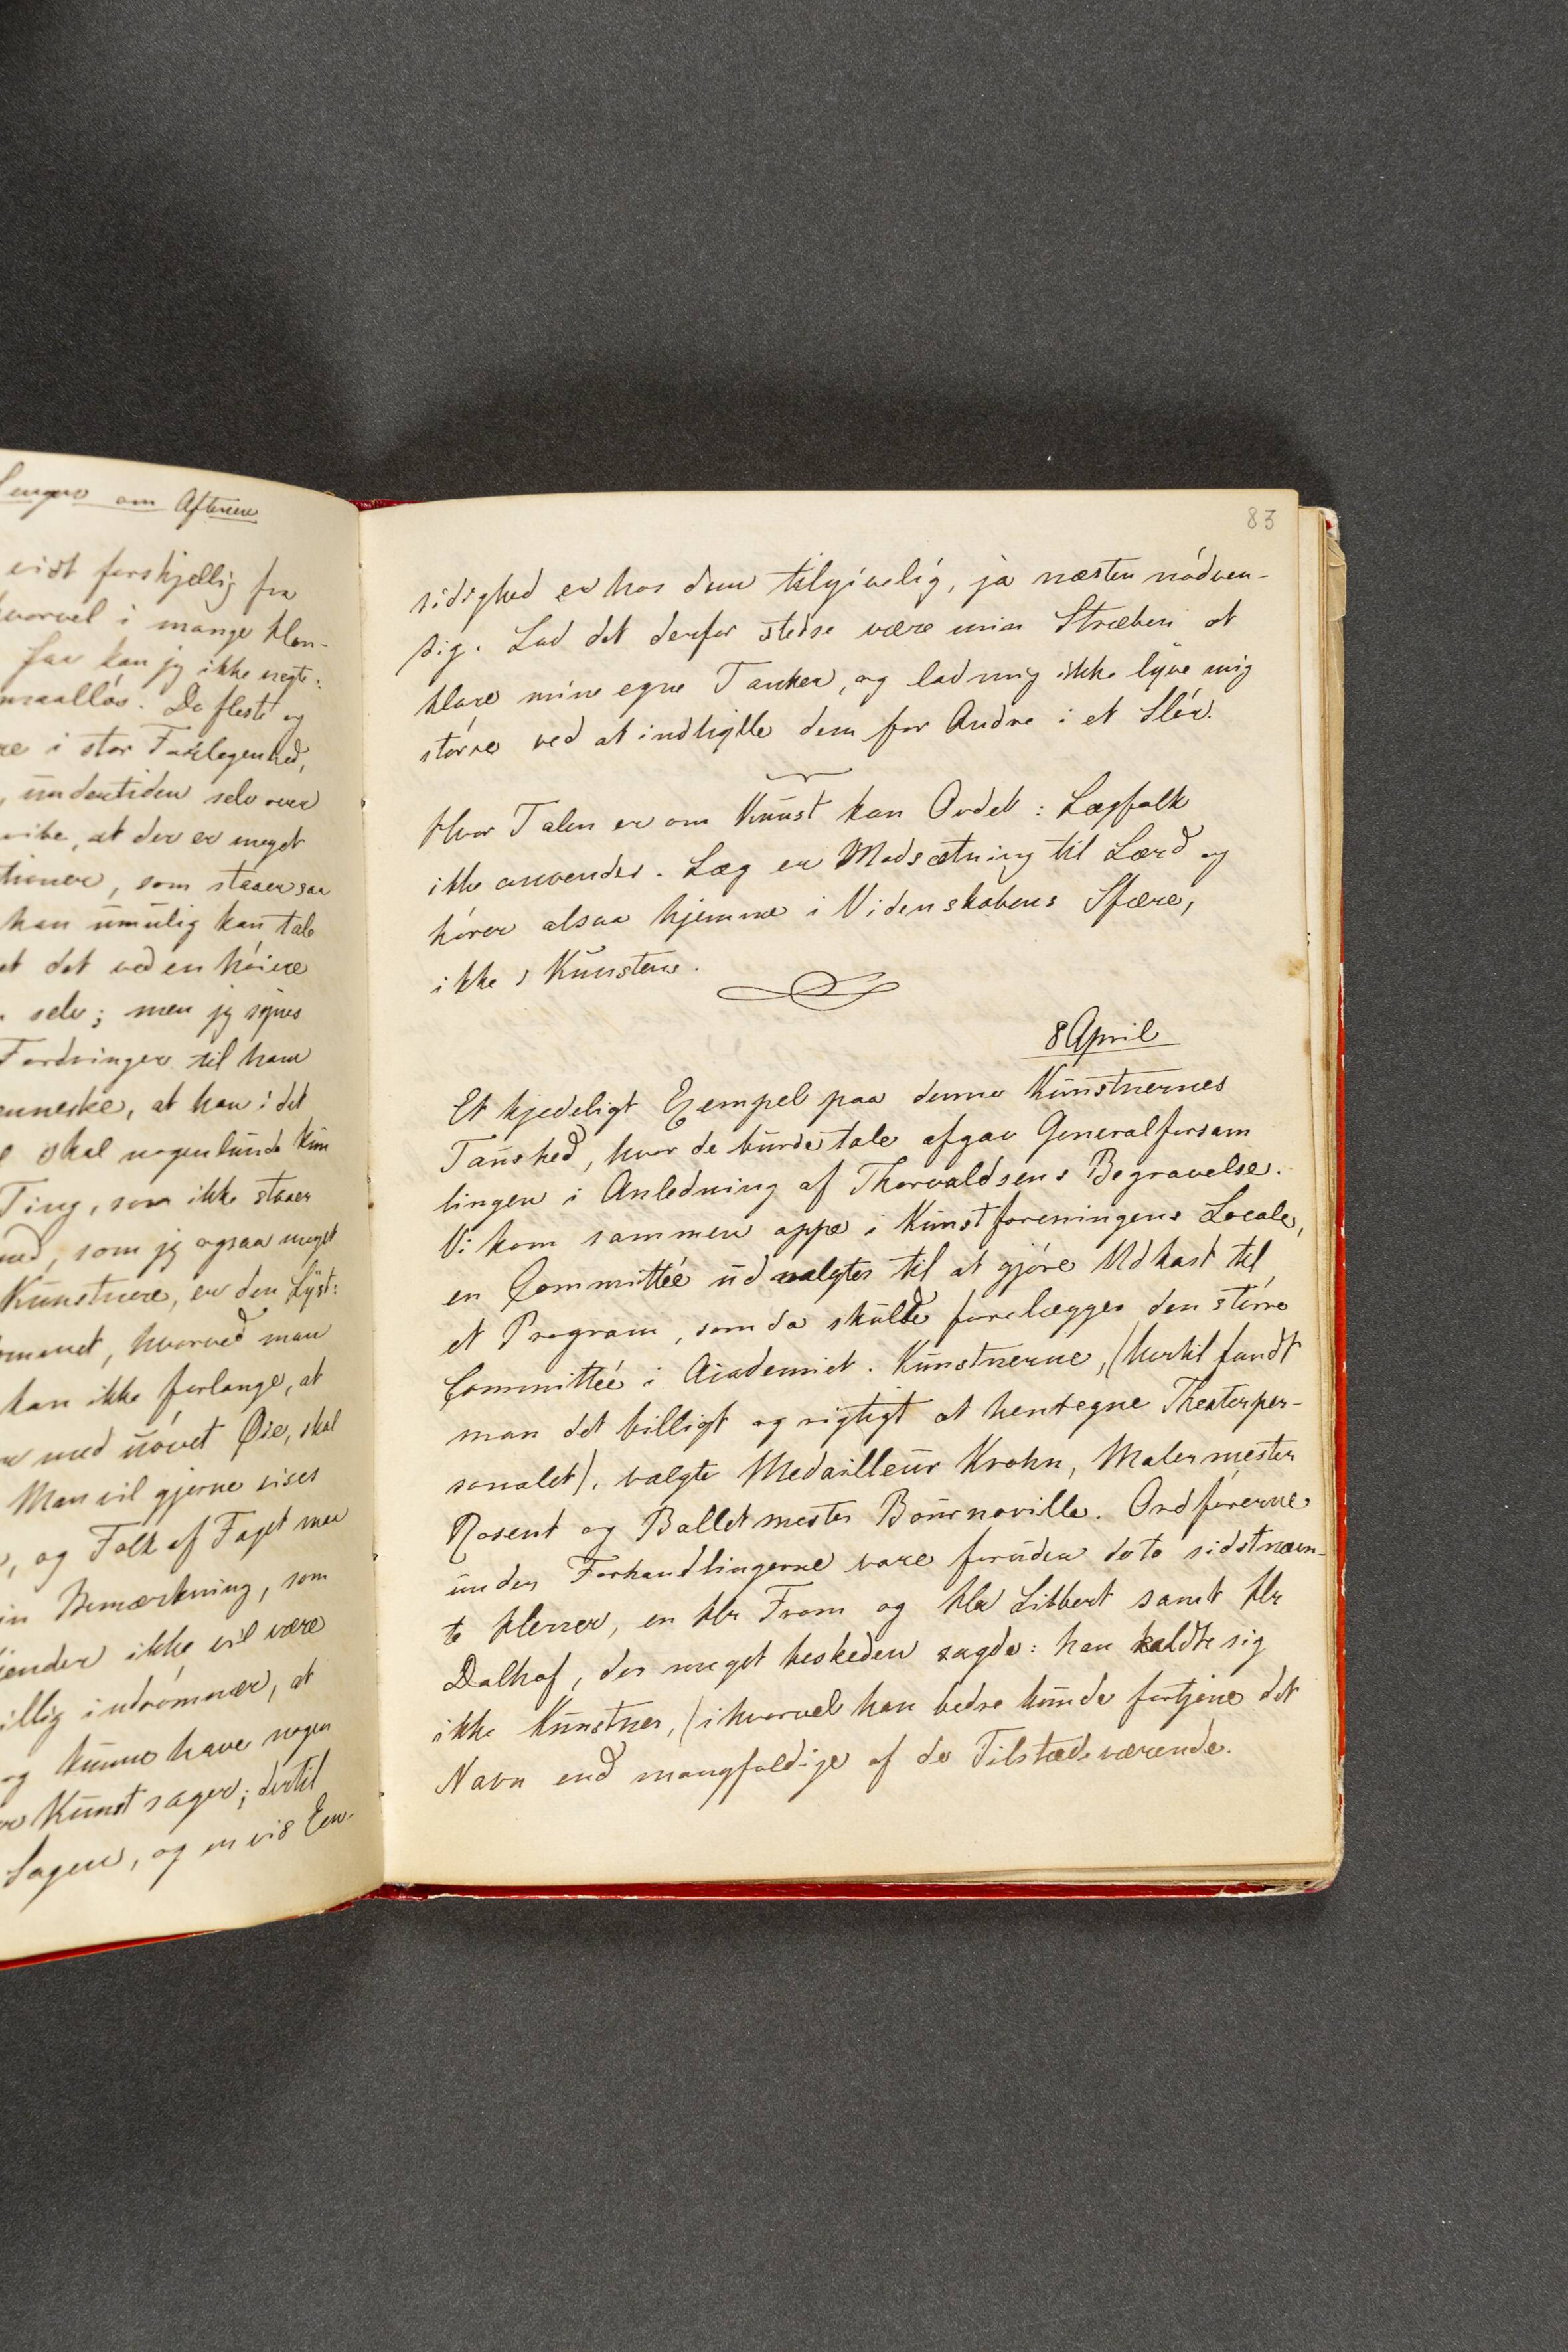 Lengere om Aftenen
vist forskjellig fra
hvorvel i mange Hen-
saa kan jeg ikke negte:
maallös. De fleste og
re i stor Forlegenhed,
, undertiden selv over
vibe, at der er meget
tioner, som staaer saa
han umulig kan tale
et det ved en höiere
selv; men jeg synes
Fordringer til ham
enneske, at han i det
skal nogenlunde kun
Ting, som ikke staaer
med, som jeg ogsaa meget
Kunstnere, er den Lyst:
omanet, hvorved man
kan ikke forlange, at
med uövet Øie, skal
Man vil gjerne vises
, og Folk af Faget maa
in Bemærkning, som
jender ikke vil være
illig indrömmer, at
og kunne have nogen
Kunstsager; dertil
Sagen, og en vis Een-
83
sidighed er hos dem tilgivelig, ja næsten nödven-
dig. Lad det derfor stedse være min Stræben at
klare mine egne Tanker, og lad mig ikke lyve mig
större ved at indhylle dem for Andre i et Slör.
Hvor Talen er om Kunst kan Ordet: Lægfolk
ikke anvendes. Læg er Modsætning til Lærd og
hörer alsaa hjemme i Videnskabens Sfære,
ikke i Kunstens.
8 April
Et kjedeligt Exempel paa denne Kunstnernes
Taushed, hvor de burde tale afgav Generalforsam
lingen i Anledning af Thorvaldsens Begravelse.
Vi kom sammen oppe i Kunstforeningens Locale,
en Committée udvalgtes til at gjöre Udkast til
et Program, som da skulde forelægges den större
Committée i Academiet. Kunstnerne, (hertil fandt
man det billigt og rigtigt at henregne Theaterper-
sonalet), valgte Medailleur Krohn, Malermester
Rosent og Balletmester Bournoville. Ordförerne
under Forhandlingerne vare foruden de to sidstnævn-
te Herrer, en Hr From og Hr Libbert samt Hr
Dalhof, der meget beskeden sagde: han kaldte sig
ikke Kunstner, (ihvorvel han bedre kunde fortjene det
Navn end mangfoldige af de Tilstedeværende.